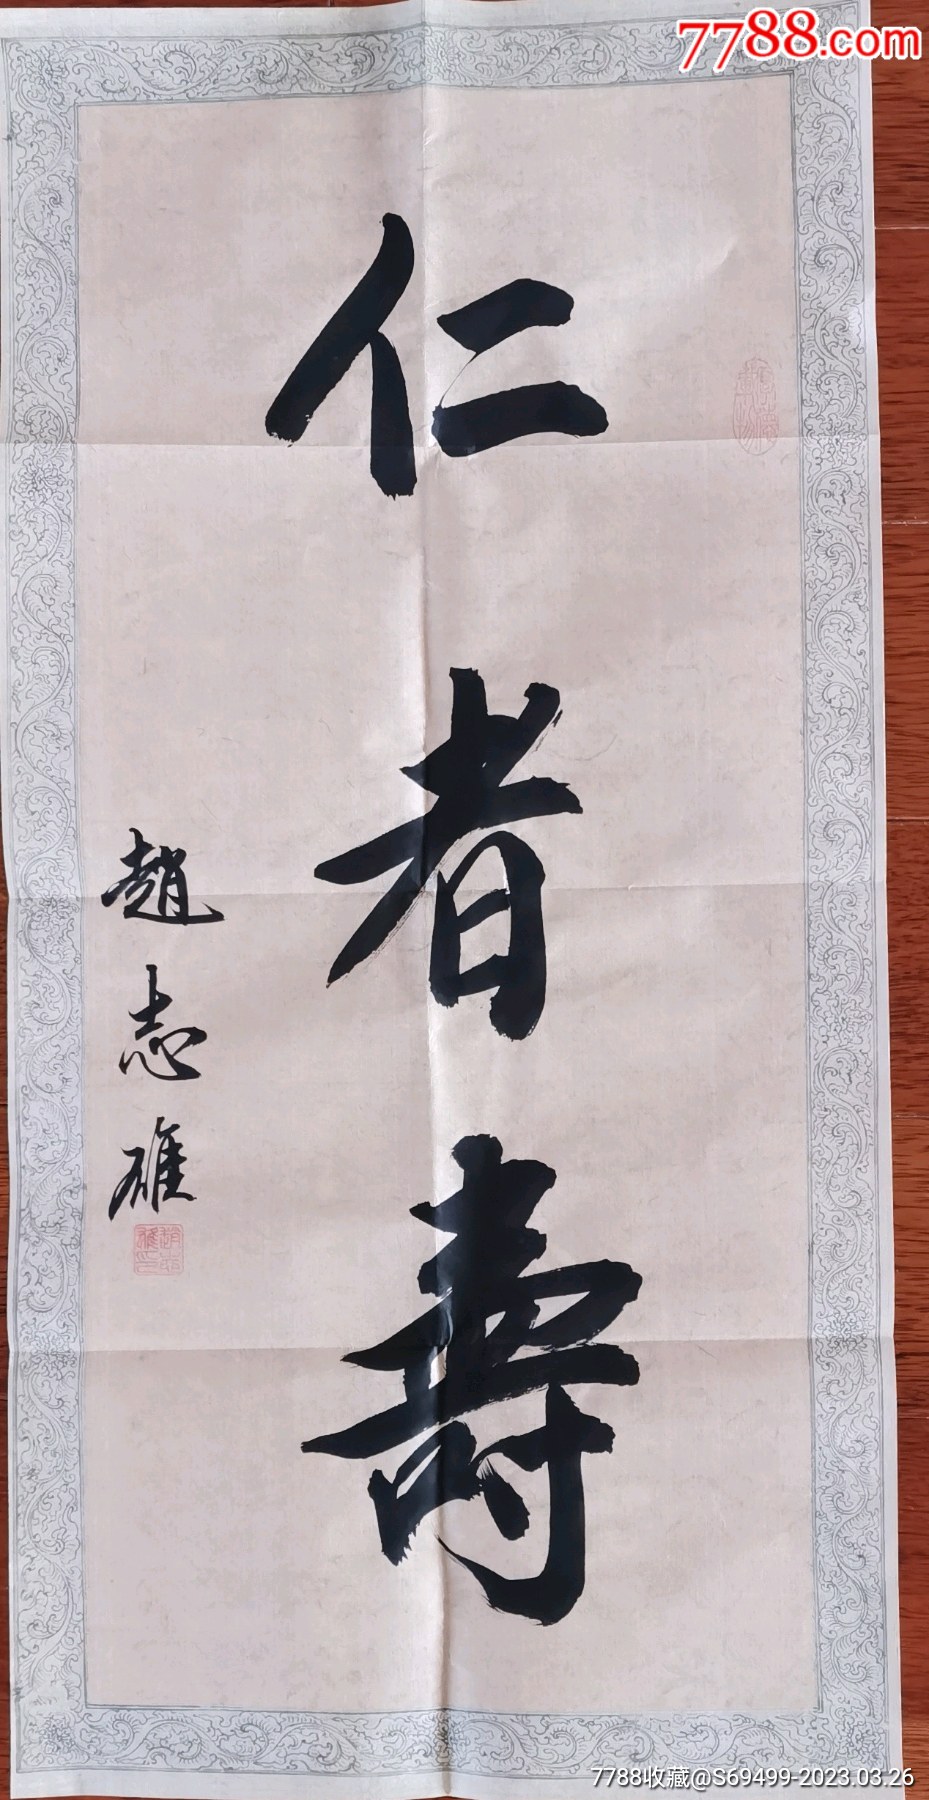 7788.com
仁者壽
趙志雄
7788收藏@S69499-2023.03.26